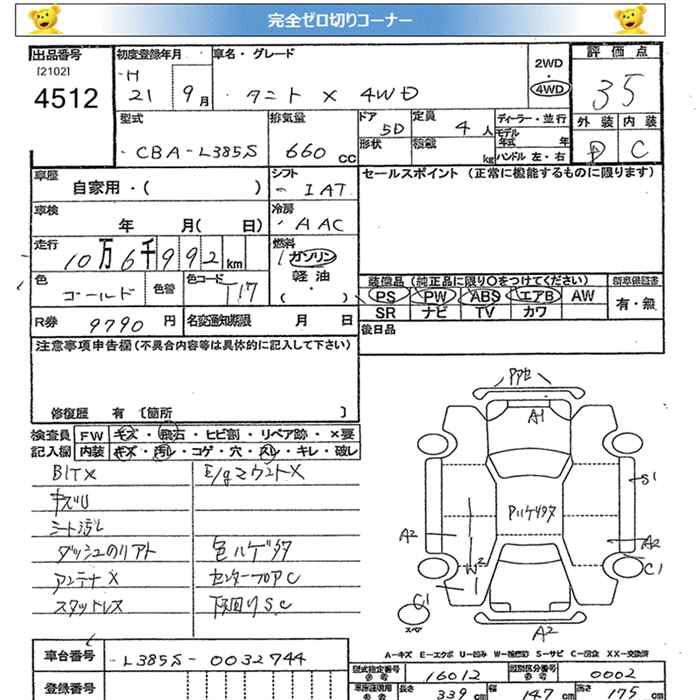 完全ゼロ切りコーナー
出品番号 初度登録年月 車名・グレード 2WD 評価点
[2102] H ・
4512 21 9月 タント X 4WD 4WD 35
型式 排気量 ドア 5D 定員 4人 ディーラー・並行 外装 内装
CBA-L385S 660 CC 形状 積載 kg モデル年式 年 D C
ハンドル 左・右
車歴 シフト セールスポイント (正常に機能するものに限ります)
自家用・( ) IAT
車検 冷房
年 月( 日) AAC
走行 燃料
10万6千992km ガソリン
軽油
色 色替 色コード ・ 装備品 (純正品に限り○をつけてください) 新車保証書
ゴールド T17 ( ) PS PW ABS エアB AW 有・無
SR ナビ TV カワ
R券 9790円 名変通知期限 月 日 後日品
注意事項申告欄 (不具合内容等は具体的に記入して下さい)
修復歴 有 〔箇所 〕
検査員 FW キズ・飛石・ヒビ割・リペア跡・×要
記入欄 内装 キズ・汚レ・コゲ・穴・スレ・キレ・破レ
BITX E/gマウントX
キズU
シート汚レ
ダッシュのリアト 色ハゲタタ
アンテナX センターフロアC
スタットレス 下回りS.C
A1
S1
ハゲタタ
A2 A2
W2
C1
C1
スペア
A2
A-キズ E-エクボ U-凹み W-補修跡 S-サビ C-腐食 XX-交換済
車台番号 L385S-0032744 型式指定番号 参考 16012 類別区分番号 参考 0002
登録番号 長さ 339cm 幅 147cm 高さ 175cm